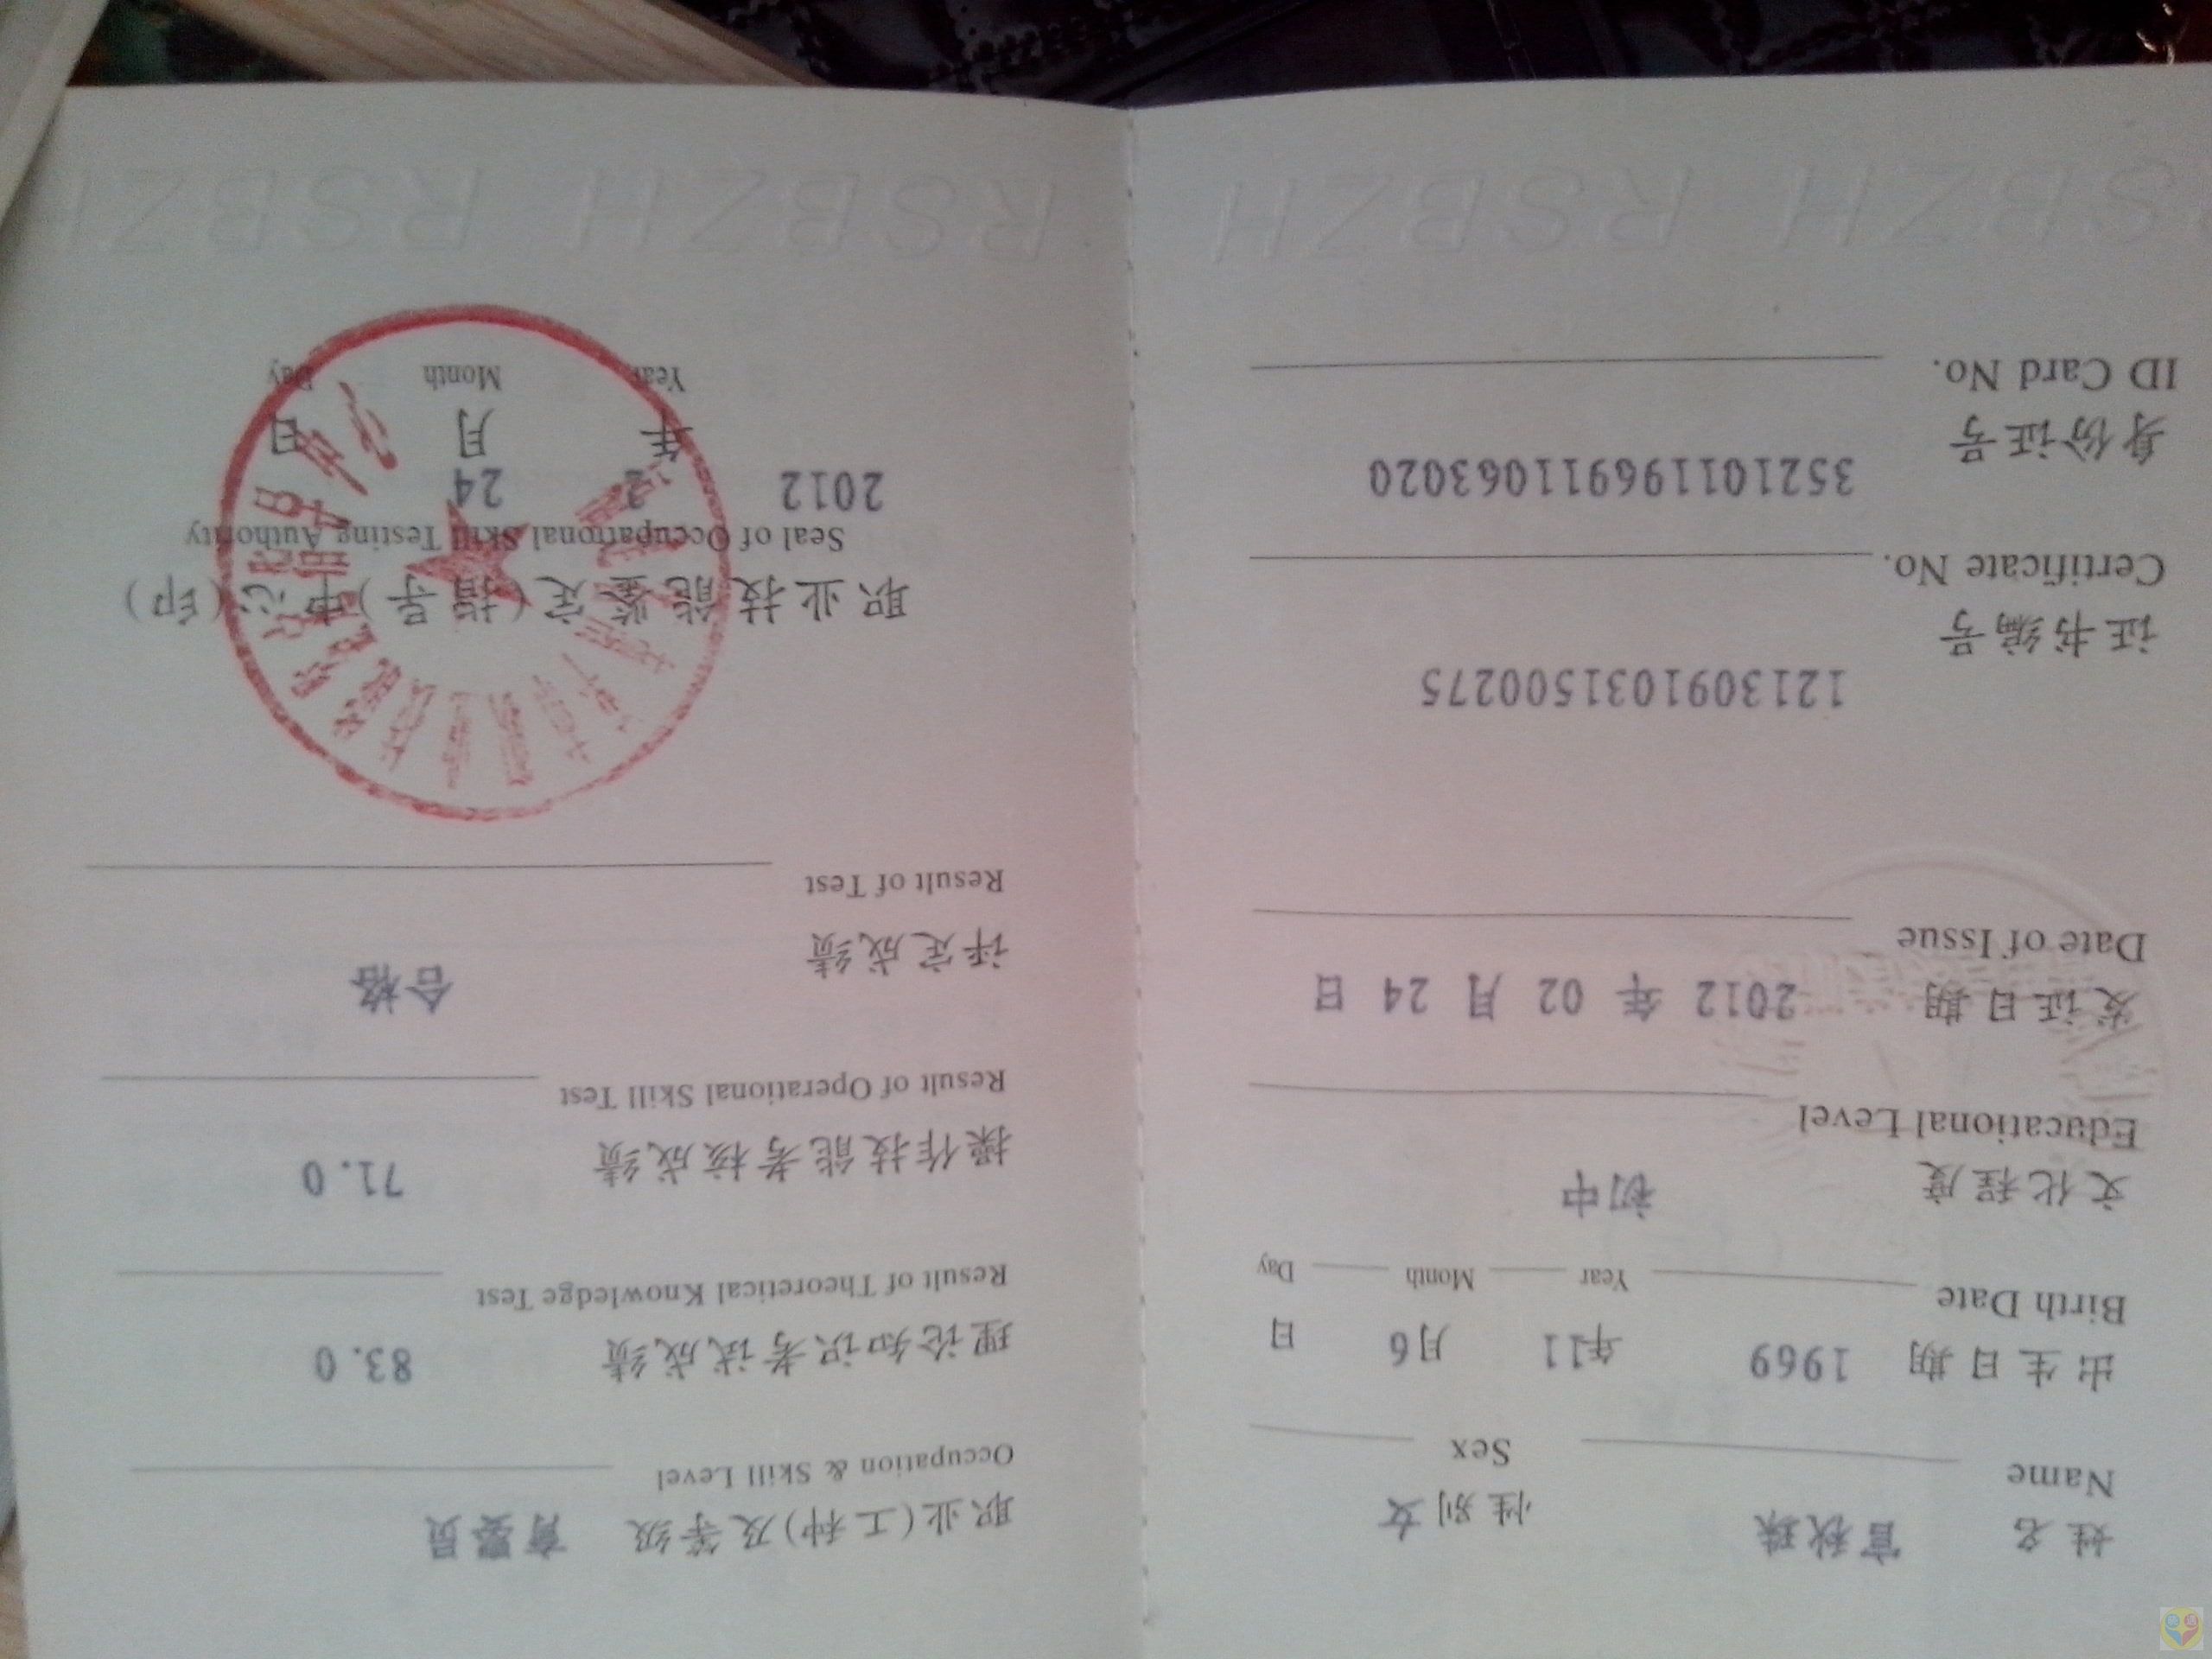 姓名 官秋珠 性别 女
Name Sex
出生日期 1969 年11 月6 日
Birth Date Year Month Day
文化程度 初中
Educational Level
发证日期 2012 年 02 月 24 日
Date of Issue
1213091031500275
证书编号
Certificate No.
352101196911063020
身份证号
ID Card No.
RSBZH RSBZH
职业(工种)及等级 育婴员
Occupation & Skill Level
理论知识考试成绩 83.0
Result of Theoretical Knowledge Test
操作技能考核成绩 71.0
Result of Operational Skill Test
评定成绩 合格
Result of Test
职业技能鉴定(指导)中心(印)
Seal of Occupational Skill Testing Authority
2012 2 24
年 月 日
Year Month Day
RSBZH RSBZH